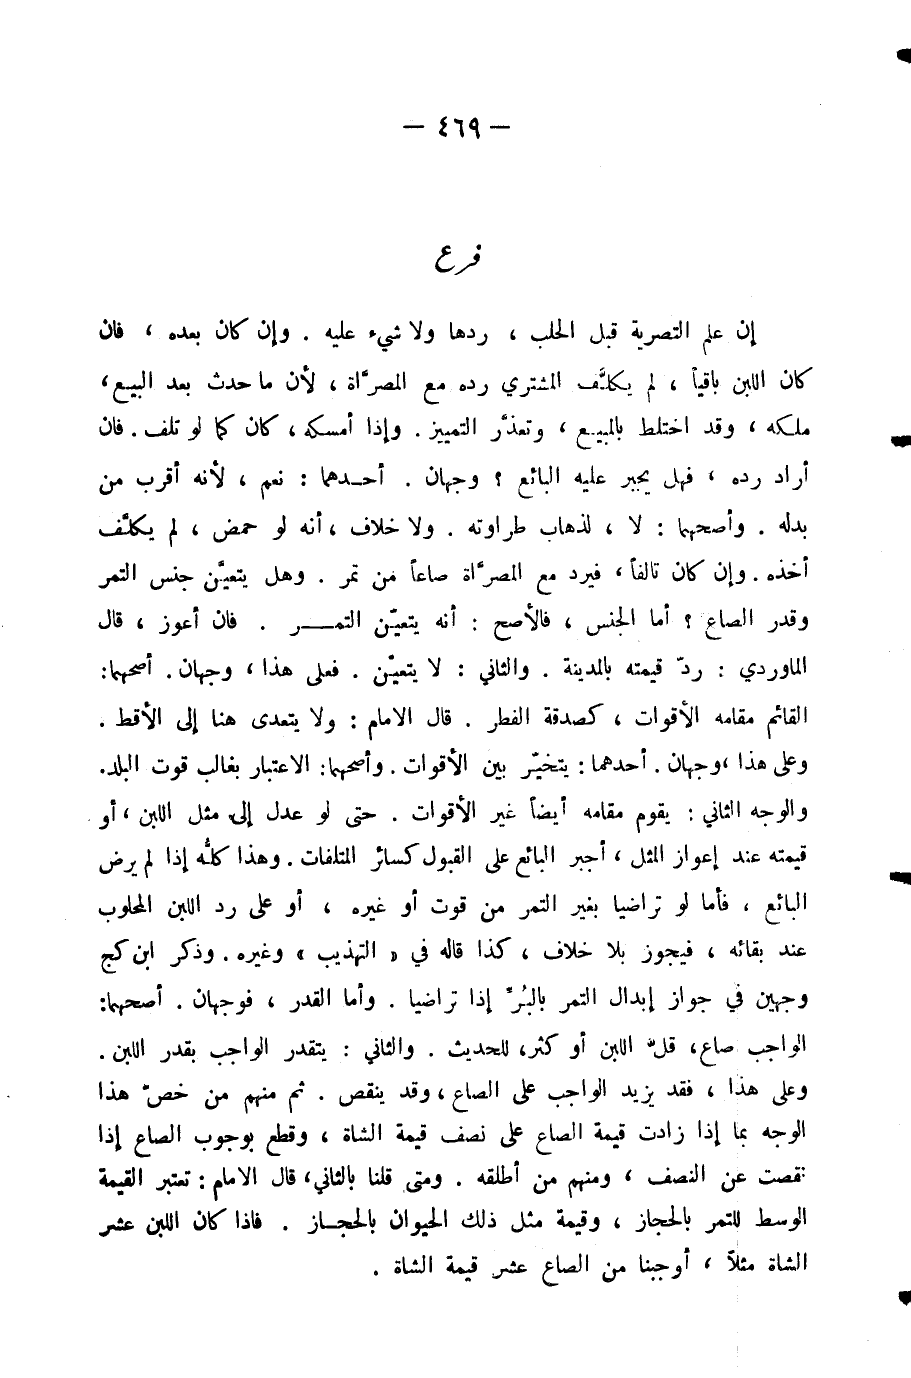 — ٤٦٩ —
فرع
إن علم التصرية قبل الحلب ، ردها ولا شيء عليه . وإن كان بعده ، فان
كان اللبن باقياً ، لم يكلَّف المشتري رده مع المصرَّاة ، لأن ما حدث بعد البيع ،
ملكه ، وقد اختلط بالمبيع ، وتعذَّر التمييز . وإذا أمسكه ، كان كما لو تلف . فان
أراد رده ، فهل يجبر عليه البائع ؟ وجهان . أحدهما : نعم ، لأنه أقرب من
بدله . وأصحهما : لا ، لذهاب طراوته . ولا خلاف ، أنه لو حمض ، لم يكلَّف
أخذه . وإن كان تالفاً ، فيرد مع المصرَّاة صاعاً من تمر . وهل يتعيَّن جنس التمر
وقدر الصاع ؟ أما الجنس ، فالأصح : أنه يتعيّن التمــــر . فان أعوز ، قال
الماوردي : ردّ قيمته بالمدينة . والثاني : لا يتعيّن . فعلى هذا ، وجهان . أصحهما :
القائم مقامه الأقوات ، كصدقة الفطر . قال الامام : ولا يتعدى هنا إلى الأقط .
وعلى هذا ، وجهان . أحدهما : يتخيّر بين الأقوات . وأصحهما : الاعتبار بغالب قوت البلد .
والوجه الثاني : يقوم مقامه أيضاً غير الأقوات . حتى لو عدل إلى مثل اللبن ، أو
قيمته عند إعواز المثل ، أجبر البائع على القبول كسائر المتلفات . وهذا كلُّه إذا لم يرض
البائع ، فأما لو تراضيا بغير التمر من قوت أو غيره ، أو على رد اللبن المحلوب
عند بقائه ، فيجوز بلا خلاف ، كذا قاله في « التهذيب » وغيره . وذكر ابن كج
وجهين في جواز إبدال التمر بالبُرِّ إذا تراضيا . وأما القدر ، فوجهان . أصحهما :
الواجب صاع ، قلّ اللبن أو كثر ، للحديث . والثاني : يتقدر الواجب بقدر اللبن .
وعلى هذا ، فقد يزيد الواجب على الصاع ، وقد ينقص . ثم منهم من خصّ هذا
الوجه بما إذا زادت قيمة الصاع على نصف قيمة الشاة ، وقطع بوجوب الصاع إذا
نقصت عن النصف ، ومنهم من أطلقه . ومتى قلنا بالثاني ، قال الامام : تعتبر القيمة
الوسط للتمر بالحجاز ، وقيمة مثل ذلك الحيوان بالحجـاز . فاذا كان اللبن عشر
الشاة مثلاً ، أوجبنا من الصاع عشر قيمة الشاة .